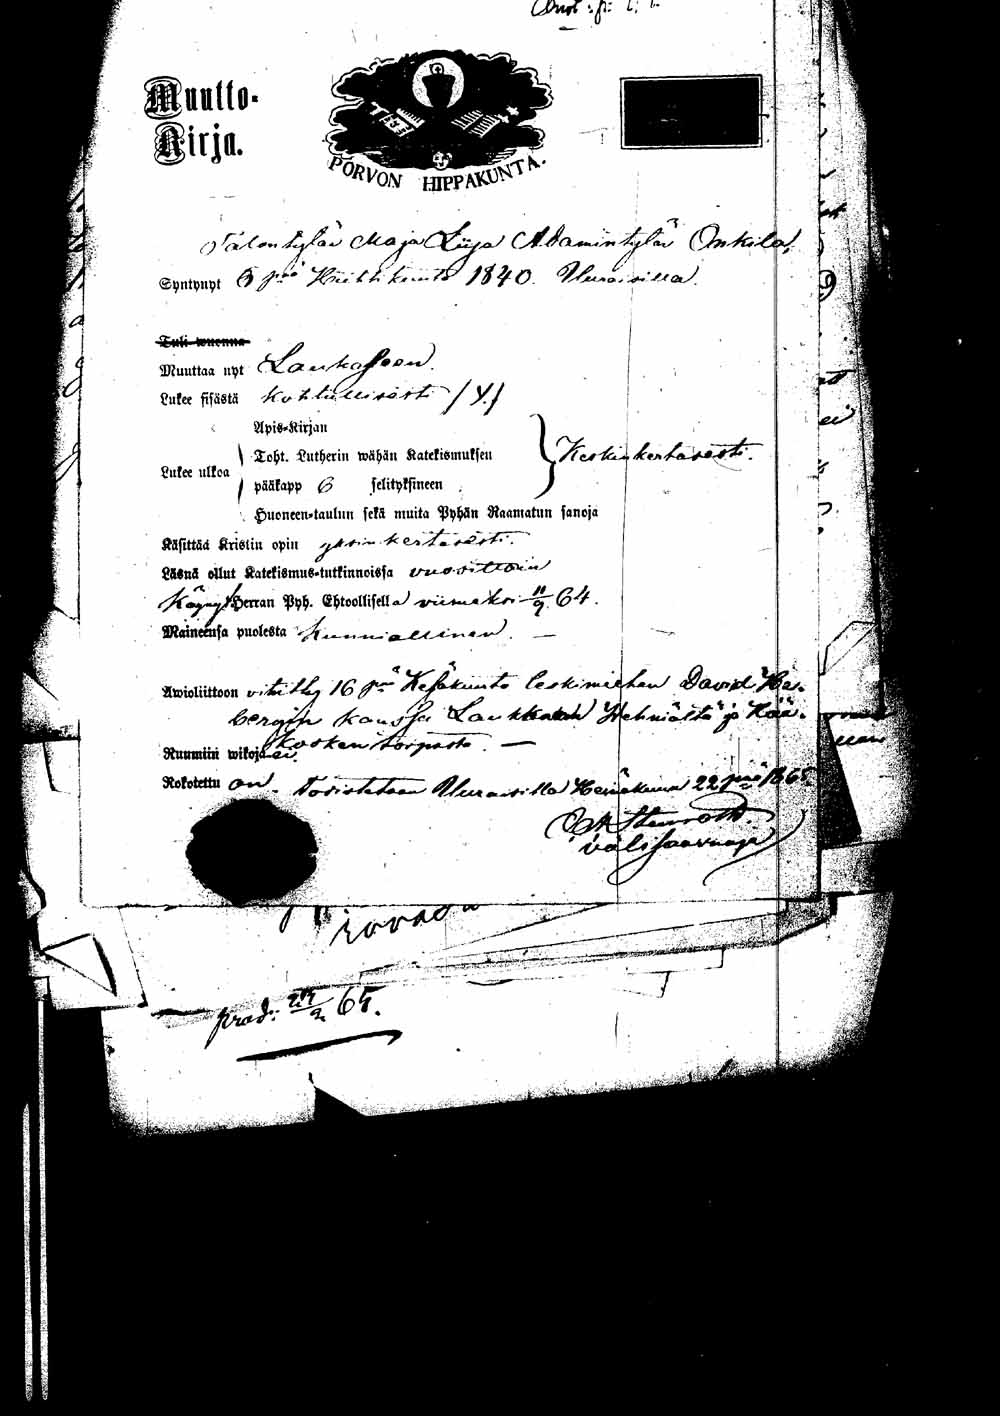 Muutto-
Kirja.
PORVON HIPPAKUNTA.
Talontytär Maja Liija Adamintytär Onkila,
Syntynyt 6 pnä Huhtikuuta 1840. Uuraisilla.
Tuli wuonna
Muuttaa nyt Laukaseen.
Lukee sisästä kohtullisesti (Y.)
Apis-Kirjan
Lukee ulkoa Toht. Lutherin wähän Katekismuksen Keskinkertasesti.
pääkapp 6 selityksineen
Huoneen-taulun sekä muita Pyhän Raamatun sanoja
Käsittää Kristin opin yksinkertasesti.
Läsnä ollut Katekismus-tutkinnoissa vuosittain
Käynyt Herran Pyh. Ehtoollisella viimeksi 11/9 64.
Maineensa puolesta kunniallinen. —
Awioliittoon vihitty 16 pnä Kesäkuuta leskimiehen David
bergin kanssa
kosken torpasta. —
Ruumiin wikoja ei.
Rokotettu on. Todistetaan Uuraisilla Heinäkuun 22 pnä 1865.
välisaarnaaja
prod: 65.